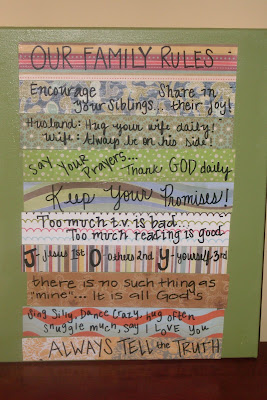 OUR FAMILY RULES
Encourage Share in
your siblings... their Joy!
Husband: Hug your wife daily!
Wife: Always be on his side!
Say Your Prayers... Thank GOD daily
Keep Your Promises!
Too much t.v. is bad...
Too much reading is good
J-Jesus 1st O-others 2nd Y-yourself-3rd
there is no such thing as
"mine"... It is all God's
Sing Silly, Dance Crazy, hug often
snuggle much, say I Love You
ALWAYS TELL the TRUTH